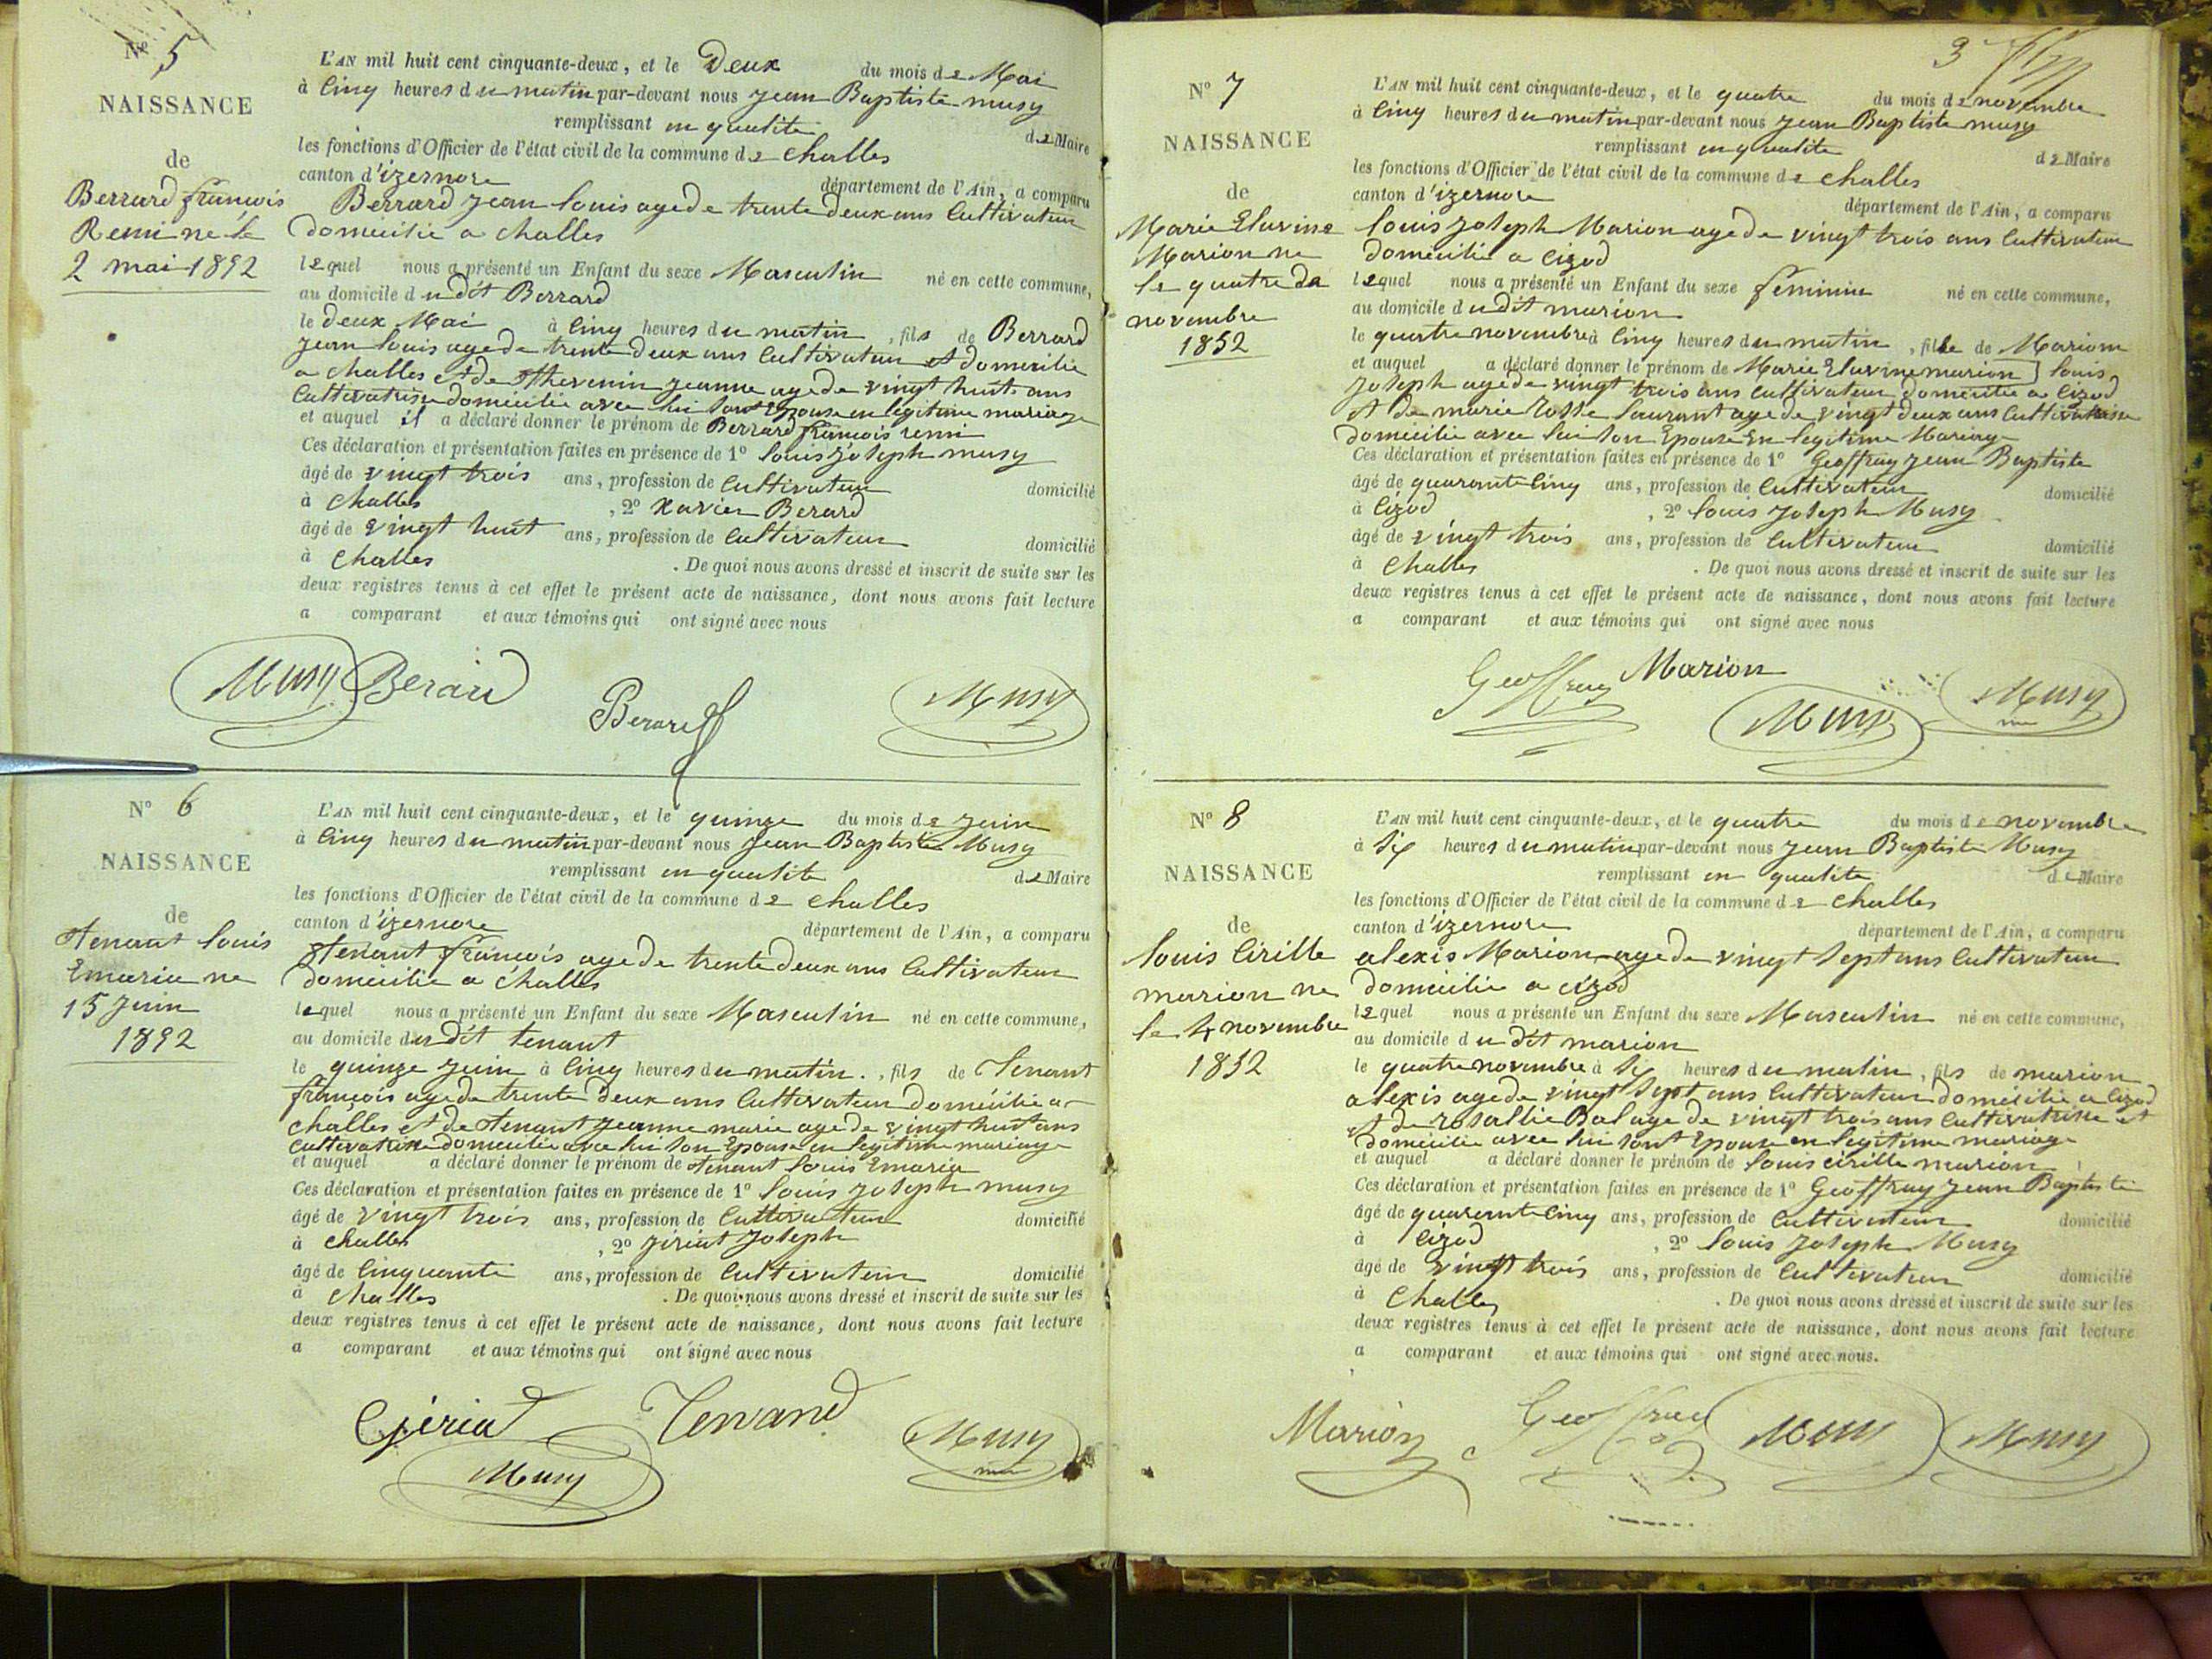 N° 5
NAISSANCE
de
Berrard françois
Remi ne le
2 mai 1852
L'AN mil huit cent cinquante-deux, et le Deux du mois de Mai
à Cinq heures du matin par-devant nous Jean Baptiste musy
remplissant en qualite de Maire
les fonctions d'Officier de l'état civil de la commune de Challes
canton d'izernore département de l'Ain, a comparu
Berrard Jean louis age de trente deux ans Cultivateur
domicilie a Challes
lequel nous a présenté un Enfant du sexe Masculin né en cette commune,
au domicile du dit Berrard
le deux Mai à Cinq heures du matin, fils de Berrard
Jean louis age de trente deux ans Cultivateur et domicilie
a Challes et de Thevenin Jeanne age de vingt huit ans
Cultivatrise domicilie avec lui son Epouse en legitime mariage
et auquel il a déclaré donner le prénom de Berrard françois remi
Ces déclaration et présentation faites en présence de 1° louis joseph musy
âgé de vingt trois ans, profession de Cultivateur domicilié
à Challes , 2° Xavier Berard
âgé de vingt huit ans, profession de Cultivateur domicilié
à Challes . De quoi nous avons dressé et inscrit de suite sur les
deux registres tenus à cet effet le présent acte de naissance, dont nous avons fait lecture
a comparant et aux témoins qui ont signé avec nous
Musy Berard Berard Musy
N° 6
NAISSANCE
de
Tenant louis
Emarie ne
15 Juin
1852
L'AN mil huit cent cinquante-deux, et le quinze du mois de Juin
à Cinq heures du matin par-devant nous Jean Baptiste Musy
remplissant en qualite de Maire
les fonctions d'Officier de l'état civil de la commune de Challes
canton d'izernore département de l'Ain, a comparu
Tenant françois age de trente deux ans Cultivateur
domicilie a Challes
lequel nous a présenté un Enfant du sexe Masculin né en cette commune,
au domicile du dit tenant
le quinze Juin à Cinq heures du matin. , fils de Tenant
françois age de trente deux ans Cultivateur domicilie a
challes et de Tenant Jeanne marie age de vingt huit ans
Cultivatrise domicilie avec lui son Epouse en legitime mariage
et auquel a déclaré donner le prénom de Tenant louis Emarie
Ces déclaration et présentation faites en présence de 1° louis joseph musy
âgé de vingt trois ans, profession de Cultivateur domicilié
à Challes , 2° Jiriat Joseph
âgé de Cinquante ans, profession de Cultivateur domicilié
à Challes . De quoi nous avons dressé et inscrit de suite sur les
deux registres tenus à cet effet le présent acte de naissance, dont nous avons fait lecture
a comparant et aux témoins qui ont signé avec nous
Gériat Tenand Musy
Musy
3
N° 7
NAISSANCE
de
Marie Eluvine
Marion ne
le quatre de
novembre
1852
L'AN mil huit cent cinquante-deux, et le quatre du mois de novembre
à Cinq heures du matin par-devant nous Jean Baptiste musy
remplissant en qualite de Maire
les fonctions d'Officier de l'état civil de la commune de Challes
canton d'izernore département de l'Ain, a comparu
louis joseph Marion age de vingt trois ans Cultivateur
domicilie a Cizod
lequel nous a présenté un Enfant du sexe féminin né en cette commune,
au domicile du dit marion
le quatre novembre à Cinq heures du matin, fille de Marion
et auquel a déclaré donner le prénom de Marie Eluvine marion } louis
Joseph age de vingt trois ans Cultivateur domicilie a Cizod
et de marie Rosse laurant age de vingt deux ans Cultivatrise
domicilie avec lui son Epouse En legitime Mariage
Ces déclaration et présentation faites en présence de 1° Geoffray Jean Baptiste
âgé de quarante Cinq ans, profession de Cultivateur domicilié
à Cizod , 2° louis Joseph Musy
âgé de vingt trois ans, profession de Cultivateur domicilié
à Challes . De quoi nous avons dressé et inscrit de suite sur les
deux registres tenus à cet effet le présent acte de naissance, dont nous avons fait lecture
a comparant et aux témoins qui ont signé avec nous
Geoffray Marion Musy Musy
N° 8
NAISSANCE
de
louis Cirille
marion ne
le 4 novembre
1852
L'AN mil huit cent cinquante-deux, et le quatre du mois de novembre
à Six heures du matin par-devant nous Jean Baptiste Musy
remplissant en qualite de Maire
les fonctions d'Officier de l'état civil de la commune de Challes
canton d'izernore département de l'Ain, a comparu
alexis Marion age de vingt Sept ans Cultivateur
domicilie a Cizod
lequel nous a présenté un Enfant du sexe Masculin né en cette commune,
au domicile du dit marion
le quatre novembre à Six heures du matin, fils de marion
alexis age de vingt Sept ans Cultivateur domicilie a Cizod
et de rosallie Bal age de vingt trois ans Cultivatrise et
domicilie avec lui sont Epouse en legitime mariage
et auquel a déclaré donner le prénom de louis cirille marion
Ces déclaration et présentation faites en présence de 1° Geoffray Jean Baptiste
âgé de quarante Cinq ans, profession de Cultivateur domicilié
à Cizod , 2° louis Joseph Musy
âgé de vingt trois ans, profession de Cultivateur domicilié
à Challes . De quoi nous avons dressé et inscrit de suite sur les
deux registres tenus à cet effet le présent acte de naissance, dont nous avons fait lecture
a comparant et aux témoins qui ont signé avec nous.
Marion Geoffray Musy Musy